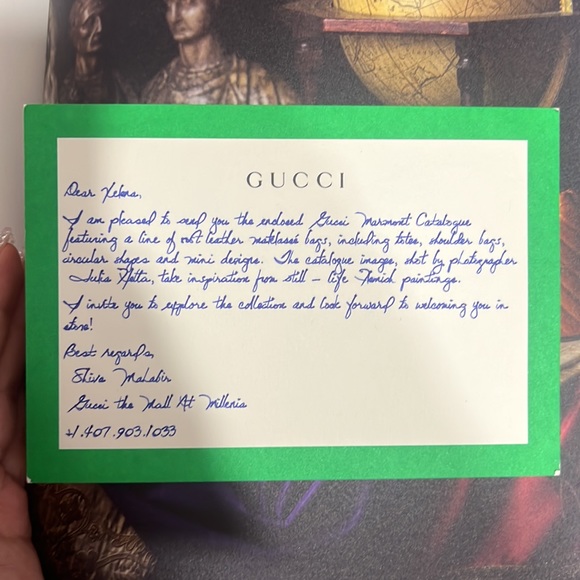 GUCCI
Dear Helena,
I am pleased to send you the enclosed Gucci Marmont Catalogue
featuring a line of soft leather matelassé bags, including totes, shoulder bags,
circular shapes and mini designs. The catalogue images, shot by photographer
Julia Hetta, take inspiration from still – life Flemish paintings.
I invite you to explore the collection and look forward to welcoming you in
store!
Best regards,
Shiva Mahabir
Gucci the Mall At Millenia
+1.407.903.1033